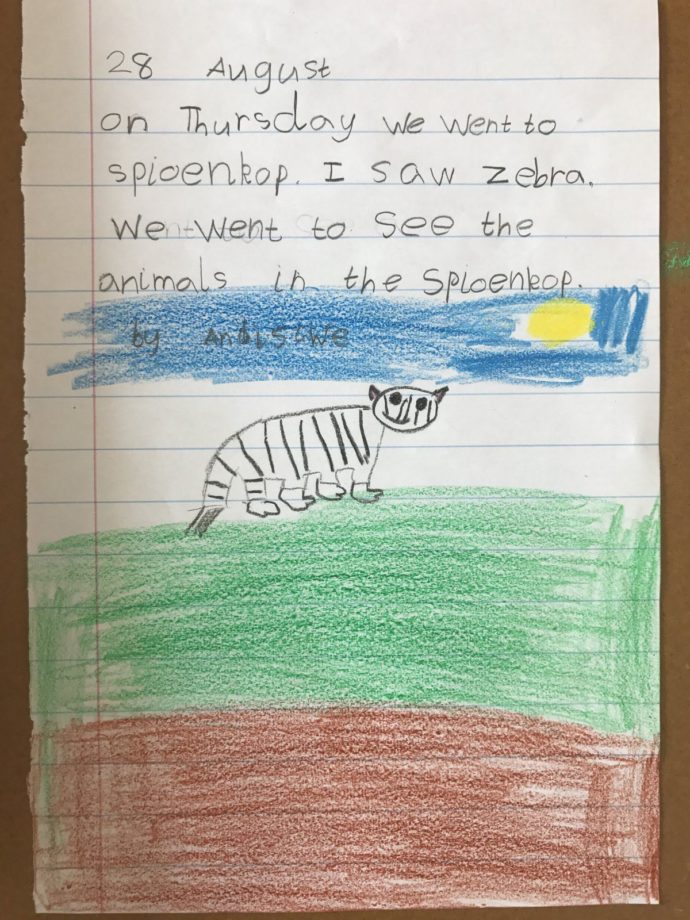 28 August
on Thursday we went to
spioenkop. I saw zebra.
We went to see the
animals in the Spioenkop.
by Andisiwe